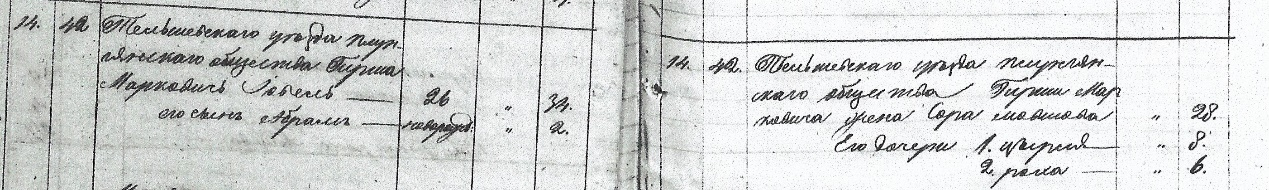 14. 42 Тельшевскаго уѣзда Плун-
гянскаго общества Гирша
Марковичъ Іовель — 26 " 34.
его сынъ Абрамъ — новорожд. " 2.
14. 42. Тельшевскаго уѣзда Плунгян-
скаго общества Гирши Мар
ковича жена Сора Мовшова " 28.
Его дочери 1. Цырля — " 8.
2. Роха — " 6.